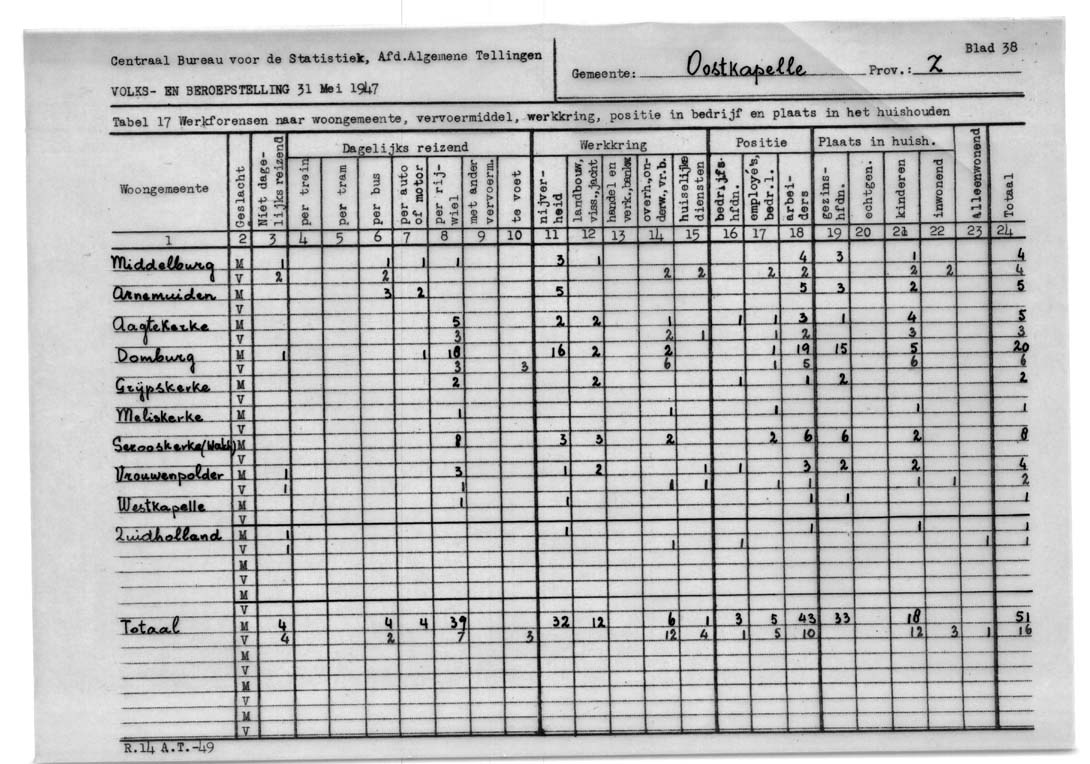 Centraal Bureau voor de Statistiek, Afd.Algemene Tellingen
VOLKS- EN BEROEPSTELLING 31 Mei 1947
Gemeente: Oostkapelle Prov.: Z
Blad 38
Tabel 17 Werkforensen naar woongemeente, vervoermiddel, werkkring, positie in bedrijf en plaats in het huishouden
Woongemeente Geslacht Niet dage-lijks reizend Dagelijks reizend Werkkring Positie Plaats in huish. alleenwonend Totaal
per trein per tram per bus per auto of motor per rij-wiel met ander vervoerm. te voet nijver-heid landbouw, viss.,jacht handel en verk.,bankw overh.on-derw.,vr.b. huiselijke diensten bedrijfs-hfdn. employé's, bedr.l. arbei-ders gezins-hfdn. echtgen. kinderen inwonend
1 2 3 4 5 6 7 8 9 10 11 12 13 14 15 16 17 18 19 20 21 22 23 24
Middelburg M 1 1 1 1 3 1 4 3 1 4
V 2 2 2 2 2 2 2 2 4
Arnemuiden M 3 2 5 5 3 2 5
V
Aagtekerke M 5 2 2 1 1 1 3 1 4 5
V 3 2 1 1 2 3 3
Domburg M 1 1 18 16 2 2 1 19 15 5 20
V 3 3 6 1 5 6 6
Grijpskerke M 2 2 1 1 2 2
V
Meliskerke M 1 1 1 1 1
V
Serooskerke (Walch) M 8 3 3 2 2 6 6 2 8
V
Vrouwenpolder M 1 3 1 2 1 1 3 2 2 4
V 1 1 1 1 1 1 1 1 2
Westkapelle M 1 1 1 1 1
V
Zuidholland M 1 1 1 1 1
V 1 1 1 1 1
M
V
M
V
Totaal M 4 4 4 39 32 12 6 1 3 5 43 33 18 51
V 4 2 7 3 12 4 1 5 10 12 3 1 16
M
V
M
V
M
V
R.14 A.T.-49